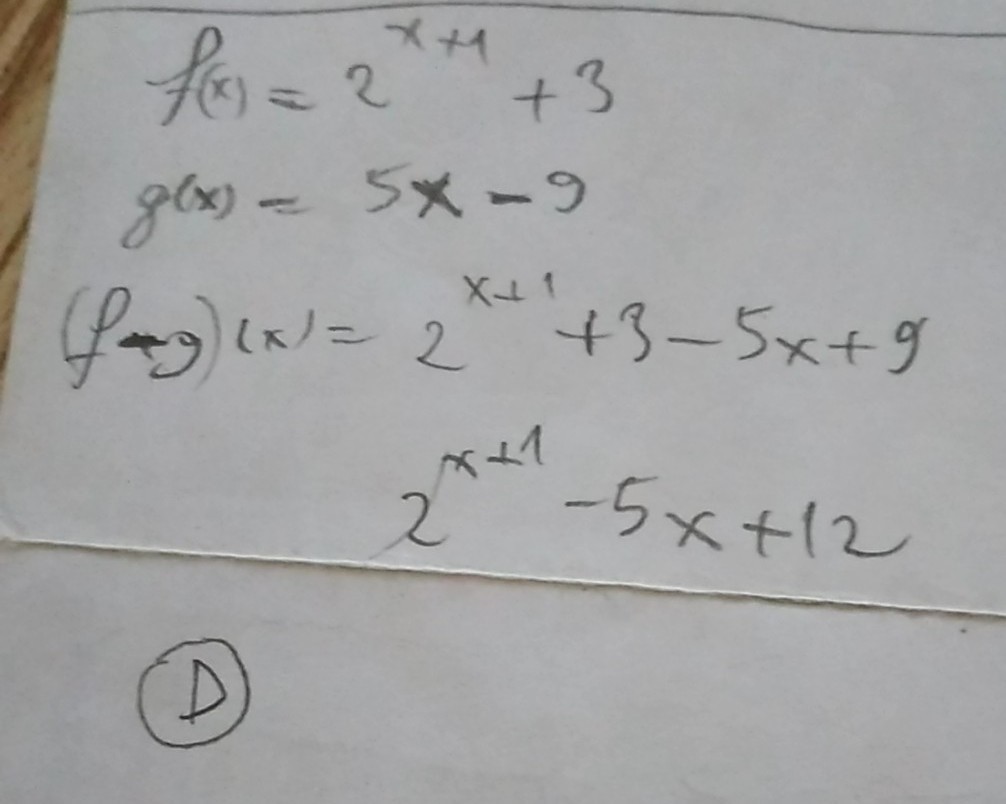 f(x) = 2^{x+1} + 3
g(x) = 5x - 9
(f-g)(x) = 2^{x+1} + 3 - 5x + 9
2^{x+1} - 5x + 12
D